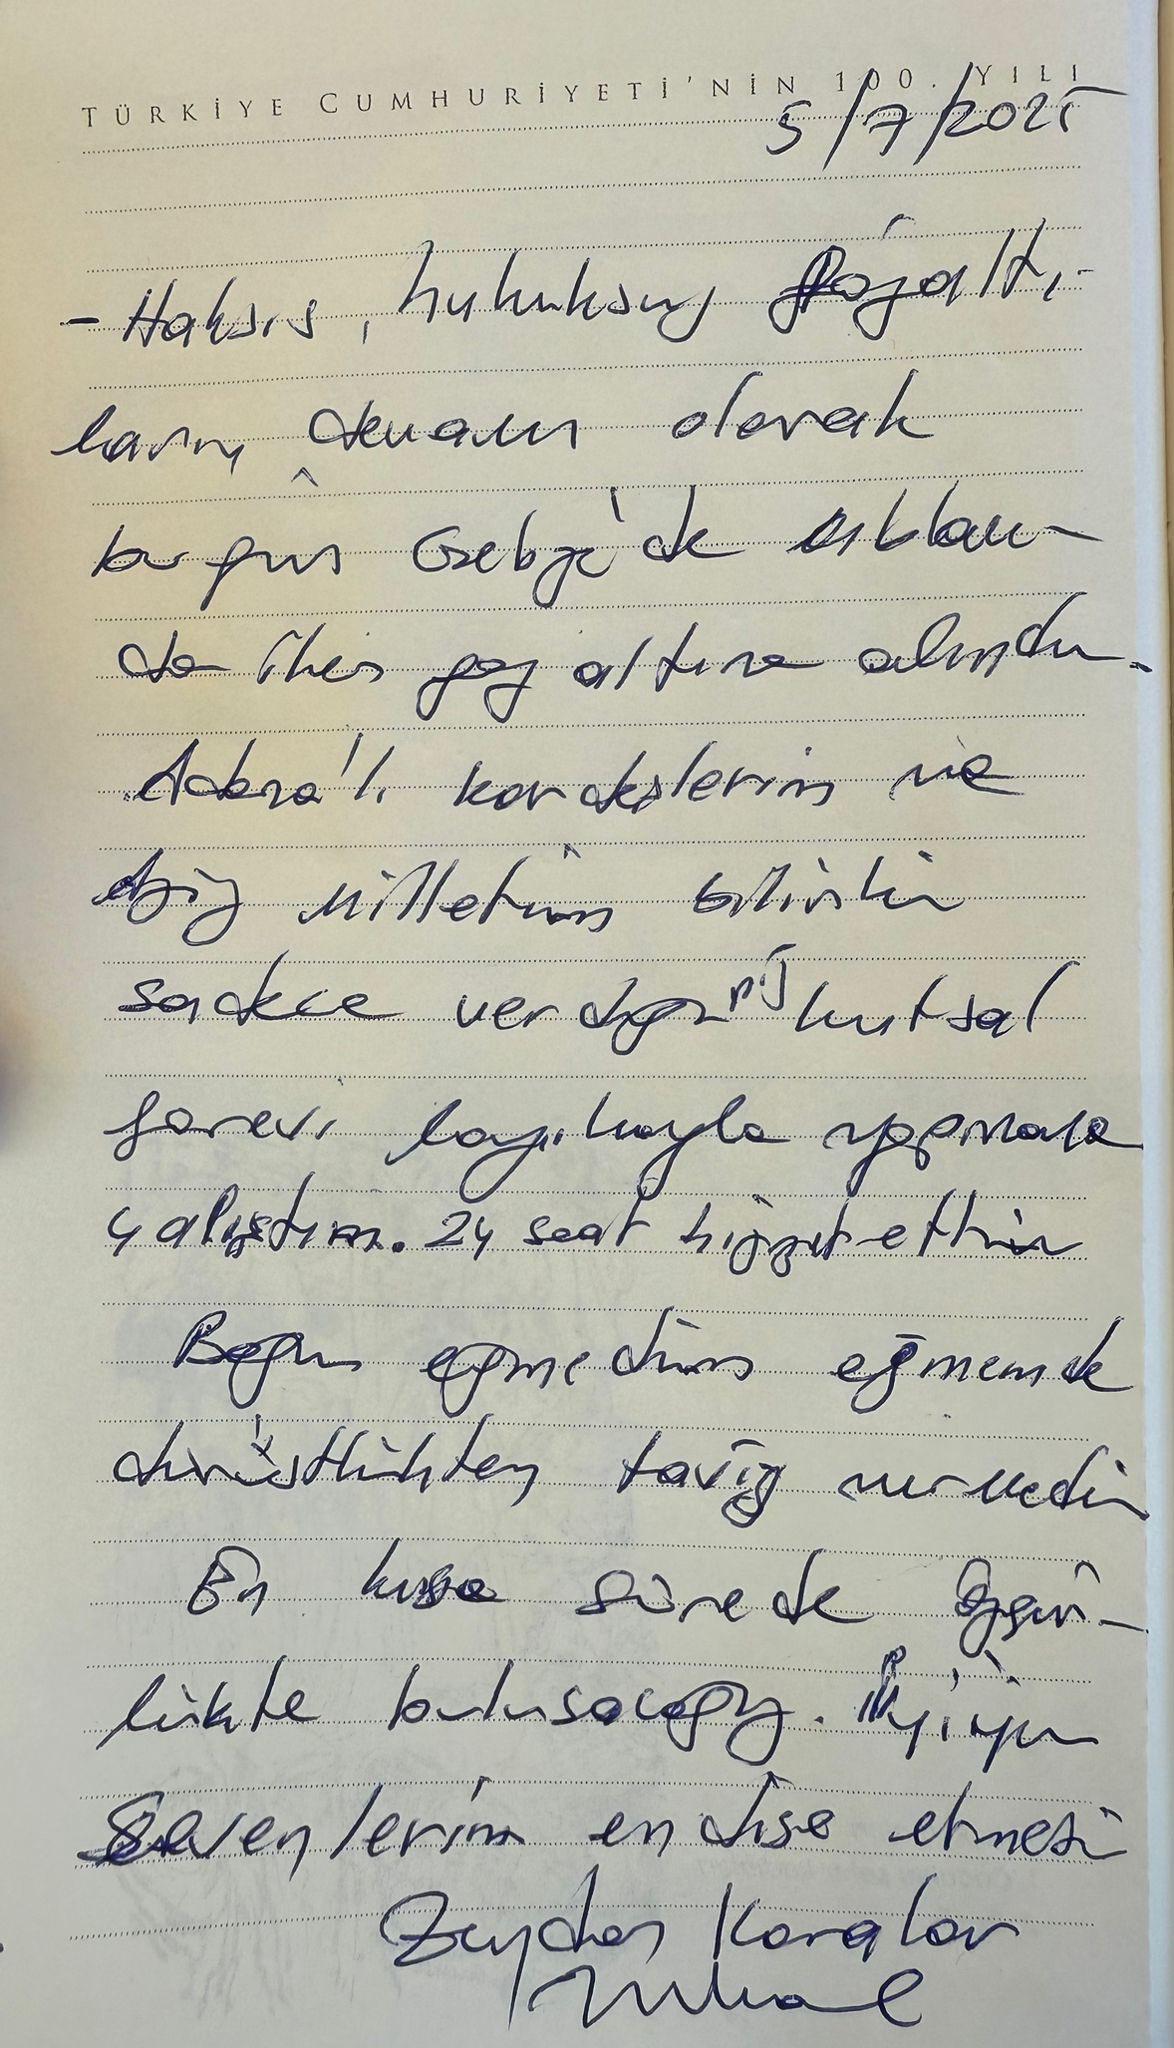 TÜRKİYE CUMHURİYETİ'NİN 100. YILI
5/7/2025
- Haksız, hukuksuz gözaltı-
ların devamı olarak
bugün Gebze'de
da gözaltına alındım.
Adana'lı kardeşlerim ve
Aziz milletim bilsinki
sadece verdiğiniz kutsal
görevi layıkıyla yapmaya
çalıştım. 24 saat hizmet ettim
Boyun eğmedim eğmemde
dürüstlükten taviz vermedim
En kısa sürede özgür-
lükte buluşacağız. İyiyim
Sevenlerim endişe etmesin
Zeydan Karalar